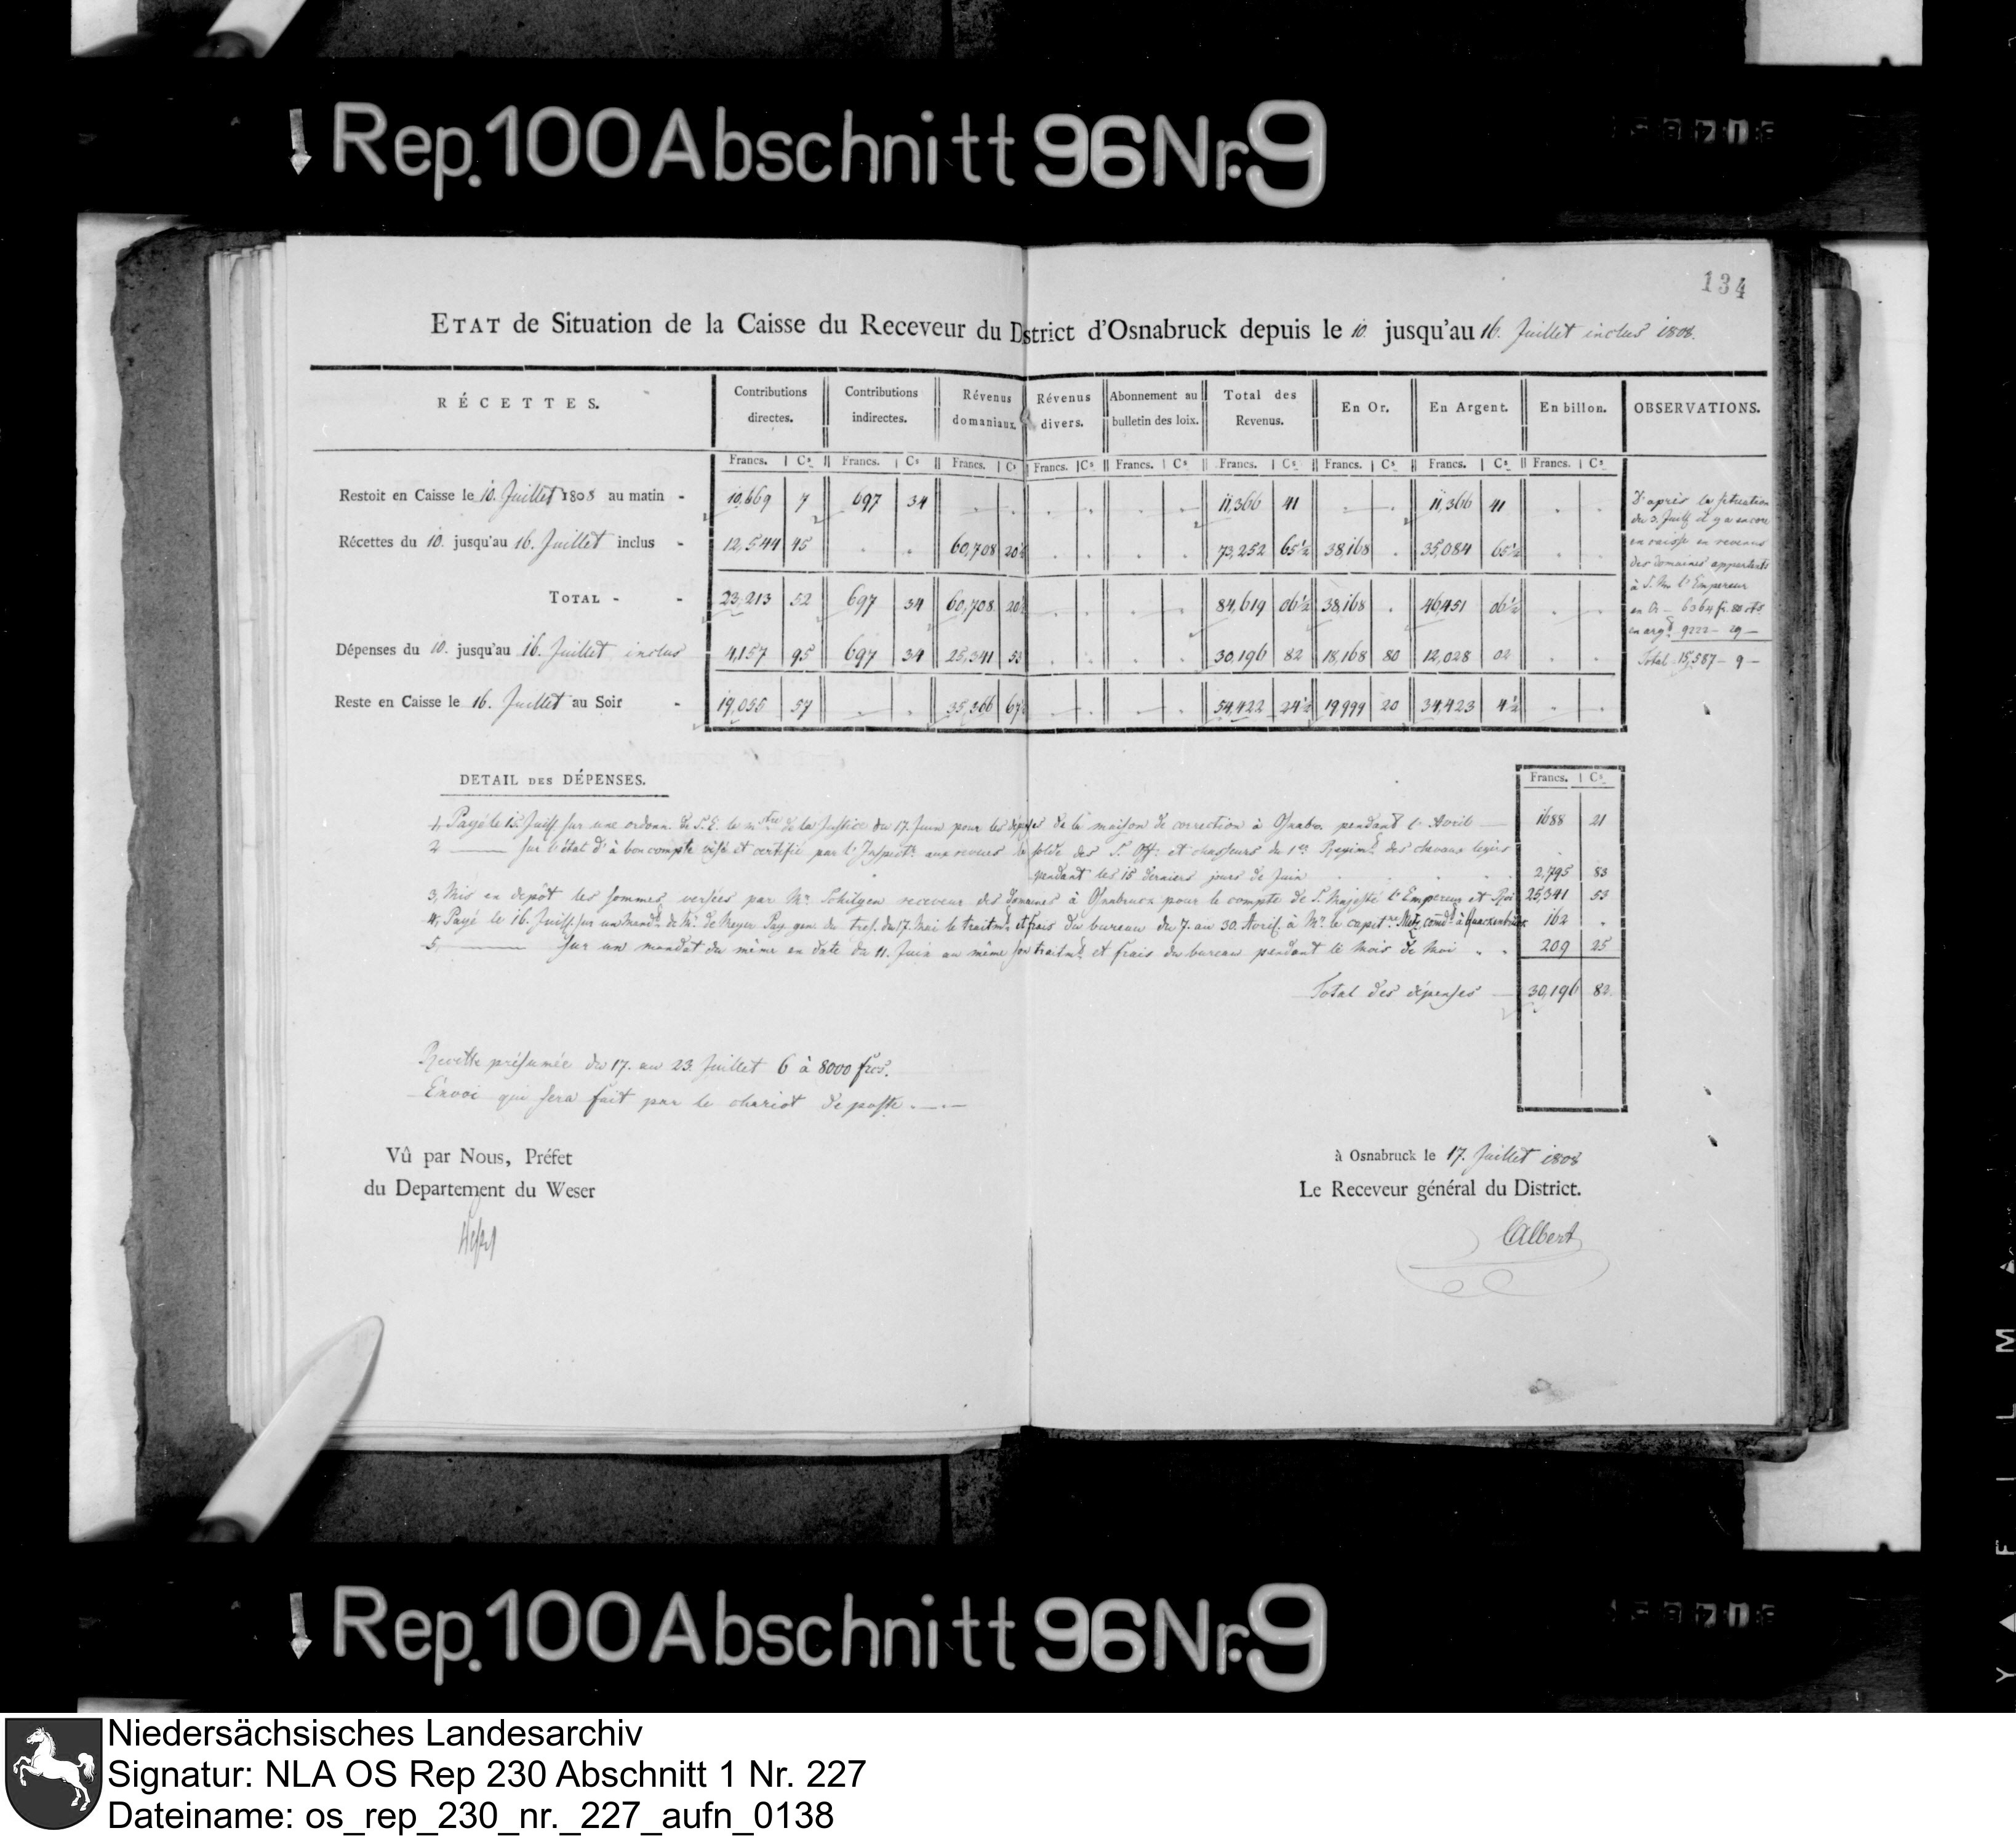 Rep. 100 Abschnitt 96 Nr. 9
134
ETAT de Situation de la Caisse du Receveur du District d'Osnabruck depuis le 10. jusqu'au 16. Juillet inclus 1808.
RÉCETTES. Contributions directes. Contributions indirectes. Révenus domaniaux. Révenus divers. Abonnement au bulletin des loix. Total des Revenus. En Or. En Argent. En billon. OBSERVATIONS.
Francs. Cs. Francs. Cs. Francs. Cs. Francs. Cs. Francs. Cs. Francs. Cs. Francs. Cs. Francs. Cs. Francs. Cs.
Restoit en Caisse le 10. Juillet 1808 au matin - 10,669 7 697 34 . . . . . . 11,366 41 . . 11,366 41 . .
Récettes du 10. jusqu'au 16. Juillet inclus - 12,544 45 . . 60,708 20½ . . . . 73,252 65½ 38,168 . 35,084 65½ . .
TOTAL - - 23,213 52 697 34 60,708 20½ . . . . 84,619 06½ 38,168 . 46,451 06½ . .
Dépenses du 10. jusqu'au 16. Juillet inclus 4,157 95 697 34 25,341 53 . . . . 30,196 82 18,168 80 12,028 02 . .
Reste en Caisse le 16. Juillet au Soir - 19,055 57 . . 35,366 67½ . . . . 54,422 24½ 19,999 20 34,423 4½ . .
D'après la situation
du 3. Juill. il y a encore
en caisse en revenus
des domaines appartenants
à S. M. l'Empereur
en Or - 6364 fr. 80 cts
en argt. 9222 - 29 -
Total - 15,587 - 9 -
DETAIL DES DÉPENSES. Francs. Cs.
1, Payé le 15. Juill. sur une ordonn. de S. E. le mstre de la Justice du 17. Juin pour les dépenses de la maison de correction à Osnabr. pendant l' Avril 1688 21
2 sur l'état d'à bon compte visé et certifié par l'Inspectr. aux revues la solde des S. Off. et chasseurs du 1er Regimt. des chevaux legers
pendant les 15 derniers jours de Juin 2,795 83
3, Mis en depôt les sommes versées par Mr. Schilgen receveur des domaines à Osnabruck pour le compte de S. Majesté l'Empereur et Roi 25,341 53
4, Payé le 16. Juill. sur un Mandt. de Mr. de Meyer Pay. gen. du tres. du 17. Mai le traitmt. et frais du bureau du 7. au 30. Avril à Mr. le capitne Metz comdt. à Quackenbrück 162 .
5, sur un mandat du même en date du 11. Juin au même son traitmt. et frais du bureau pendant le Mois de Mai 209 25
Total des dépenses 30,196 82
Recette présumée du 17. au 23. Juillet 6 à 8000 frcs.
Envoi qui sera fait par le chariot de poste.
Vû par Nous, Préfet
du Departement du Weser
à Osnabruck le 17. Juillet 1808
Le Receveur général du District.
Albert
Rep. 100 Abschnitt 96 Nr. 9
Niedersächsisches Landesarchiv
Signatur: NLA OS Rep 230 Abschnitt 1 Nr. 227
Dateiname: os_rep_230_nr._227_aufn_0138